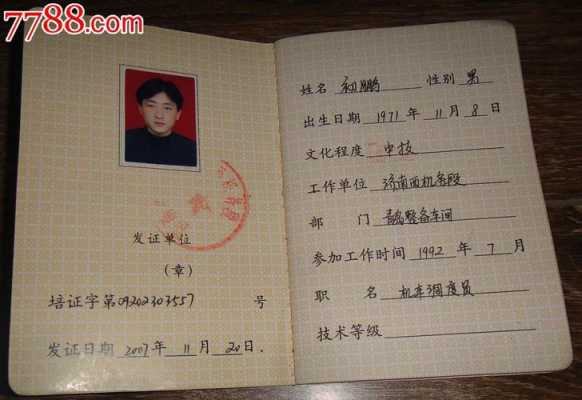 7788.com
发证单位
(章)
培证字第09202303557 号
发证日期 2007年 11 月 20 日.
姓名 初鹏 性别 男
出生日期 1971 年 11 月 8 日
文化程度 中技
工作单位 济南西机务段
部 门 青岛整备车间
参加工作时间 1992 年 7 月
职 名 机车调度员
技术等级